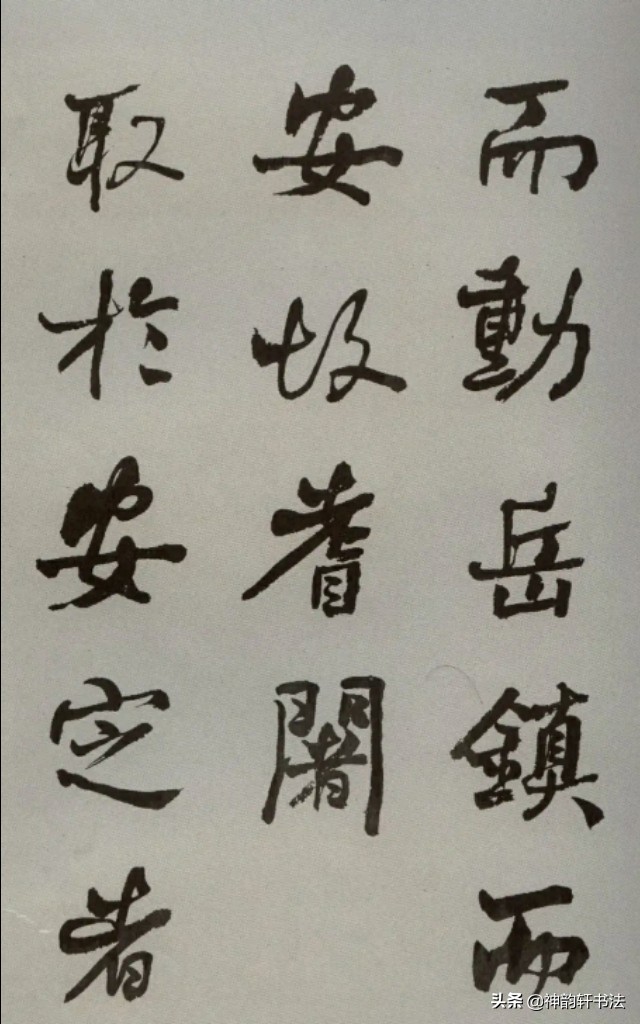 而動岳鎮而
安故耆闍
取於安定者
头条 @神韵轩书法